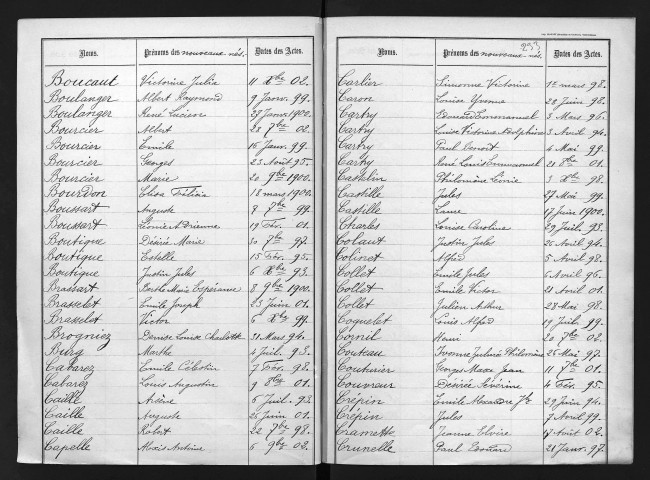 Noms. Prénoms des nouveaux-nés. Dates des Actes.
Boucaut Victorine Julia 11 Xbre 02.
Boulanger Albert Raymond 9 Janv. 99.
Boulanger René Lucien 28 Janv. 1900.
Bourcier Albert 28 7bre 02.
Bourcier Emile 16 Janv. 99.
Bourcier Georges 23 Août 95.
Bourcier Marie 20 9bre 1900.
Bourdon Elisa 18 mars 1900.
Boussart Auguste 8 7bre 99.
Boussart Léonie Adrienne 19 Fév. 01.
Boutique Désiré Marie 30 7bre 97.
Boutique Estelle 15 Fév. 95.
Boutique Justin Jules 6 Xbre 93.
Brassart Berthe Marie Espérance 8 9bre 1900.
Brasselet Emile Joseph 23 Juin 01.
Brasselet Victor 6 Xbre 99.
Brogniez Denise Louise Charlotte 31 Mars 94.
Burg Marthe 6 Juil. 93.
Cabarez Emile Célestin 7 Fév. 98.
Cabarez Louis Augustin 9 8bre 01.
Caille Arsène 6 Juil. 93.
Caille Auguste 26 Juin 01.
Caille Robert 22 7bre 98.
Capelle Alexis Antoine 6 9bre 02.
233
Noms. Prénoms des nouveaux-nés. Dates des Actes.
Carlier Simonne Victorine 1er mars 98.
Caron Louise Yvonne 28 Juin 98.
Cartry Edouard Emmanuel 3 Mars 96.
Cartry Louise Victorine Adolphine 3 Avril 94.
Cartry Paul Benoit 4 Mai 99.
Cartry René Louis Emmanuel 21 8bre 01.
Castelin Philomène Léonie 3 Xbre 98.
Castille Jules 27 Mai 99.
Castille Laure 17 Juin 1900.
Charles Louise Caroline 29 Juil. 95.
Colaut Justin Jules 26 Avril 94.
Colinet Alfred 5 Avril 98.
Collet Emile Jules 6 Avril 96.
Collet Emile Victor 21 Avril 01.
Collet Julien Arthur 28 Mai 98.
Coquelet Louis Alfred 19 Juil. 99.
Cornil Henri 20 7bre 02.
Couteau Yvonne Julina Philomène 26 Mai 97.
Couturier Georges Marc Jean 11 7bre 01.
Couvreur Désirée Séverine 4 Fév. 95.
Crépin Emile Alexandre Jh 29 Juin 94.
Crépin Jules 7 Avril 99.
Cramette Jeanne Elvire 17 Août 02.
Crunelle Paul Edouard 21 Janv. 97.